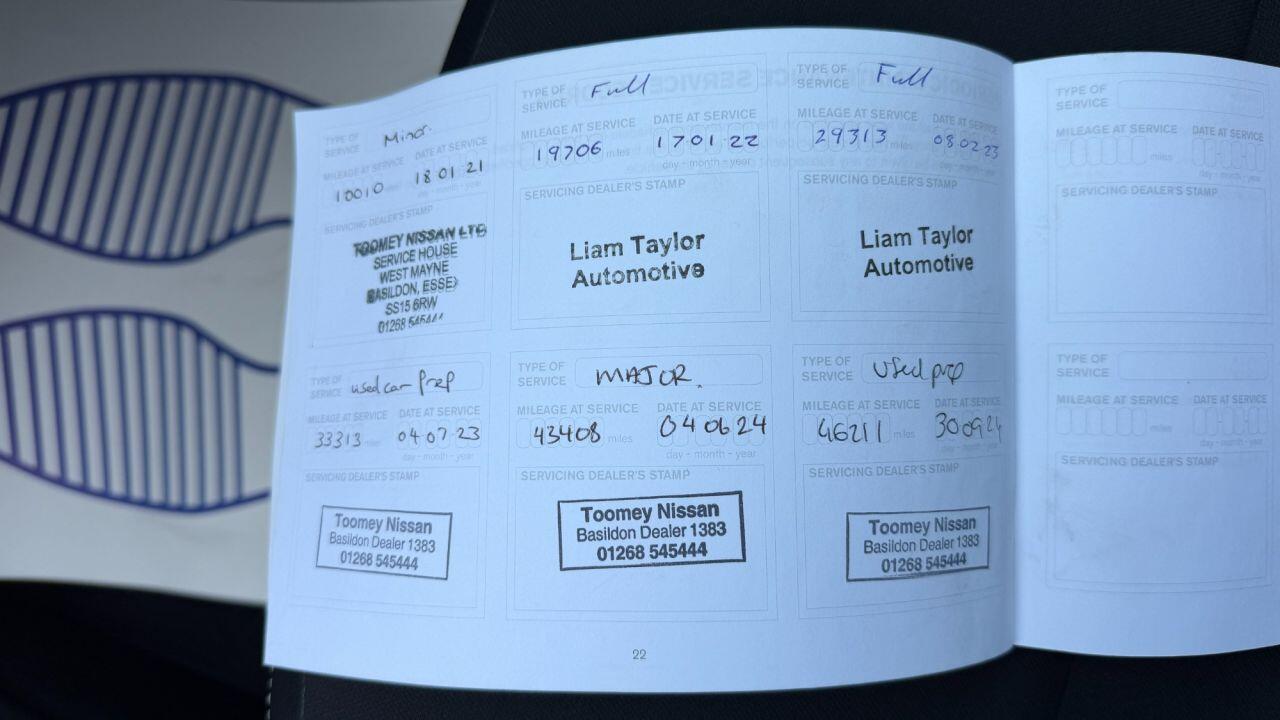 TYPE OF SERVICE Minor
MILEAGE AT SERVICE DATE AT SERVICE
10010 miles 18 01 21
day - month - year
SERVICING DEALER'S STAMP
TOOMEY NISSAN LTD
SERVICE HOUSE
WEST MAYNE
BASILDON, ESSEX
SS15 6RW
01268 545444
TYPE OF SERVICE Full
MILEAGE AT SERVICE DATE AT SERVICE
19706 miles 17 01 22
day - month - year
SERVICING DEALER'S STAMP
Liam Taylor
Automotive
TYPE OF SERVICE Full
MILEAGE AT SERVICE DATE AT SERVICE
29313 miles 08 02 23
day - month - year
SERVICING DEALER'S STAMP
Liam Taylor
Automotive
TYPE OF SERVICE used car prep
MILEAGE AT SERVICE DATE AT SERVICE
33313 miles 04 07 23
day - month - year
SERVICING DEALER'S STAMP
Toomey Nissan
Basildon Dealer 1383
01268 545444
TYPE OF SERVICE MAJOR.
MILEAGE AT SERVICE DATE AT SERVICE
43408 miles 04 06 24
day - month - year
SERVICING DEALER'S STAMP
Toomey Nissan
Basildon Dealer 1383
01268 545444
TYPE OF SERVICE Used prep
MILEAGE AT SERVICE DATE AT SERVICE
46211 miles 30 09 24
day - month - year
SERVICING DEALER'S STAMP
Toomey Nissan
Basildon Dealer 1383
01268 545444
22
TYPE OF SERVICE
MILEAGE AT SERVICE DATE AT SERVICE
miles
day - month - year
SERVICING DEALER'S STAMP
TYPE OF SERVICE
MILEAGE AT SERVICE DATE AT SERVICE
miles
day - month - year
SERVICING DEALER'S STAMP